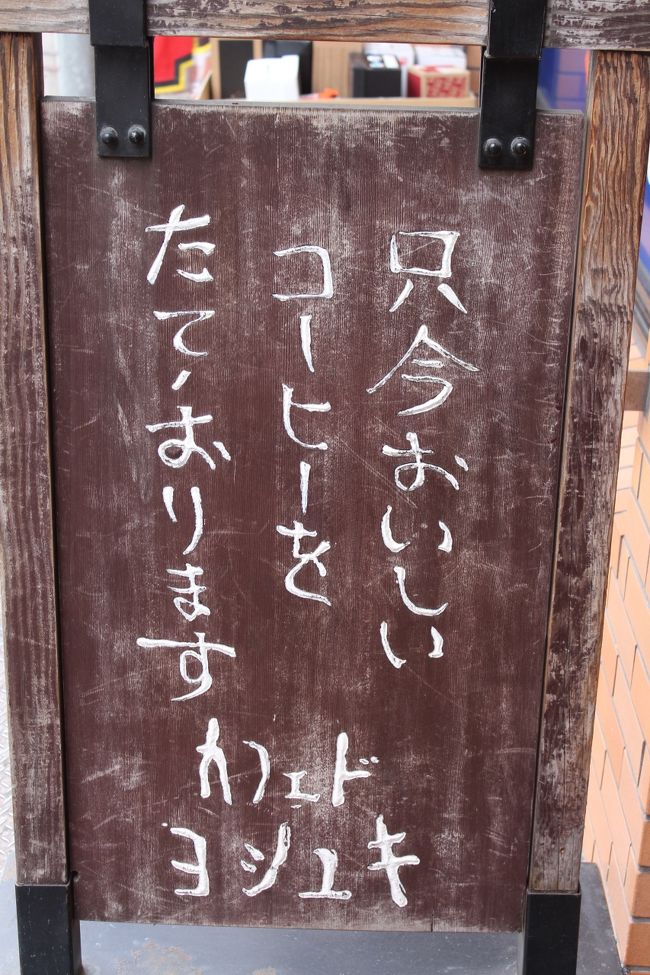 只今おいしい
コーヒーを
たてゝおります
カフェド
ヨシユキ